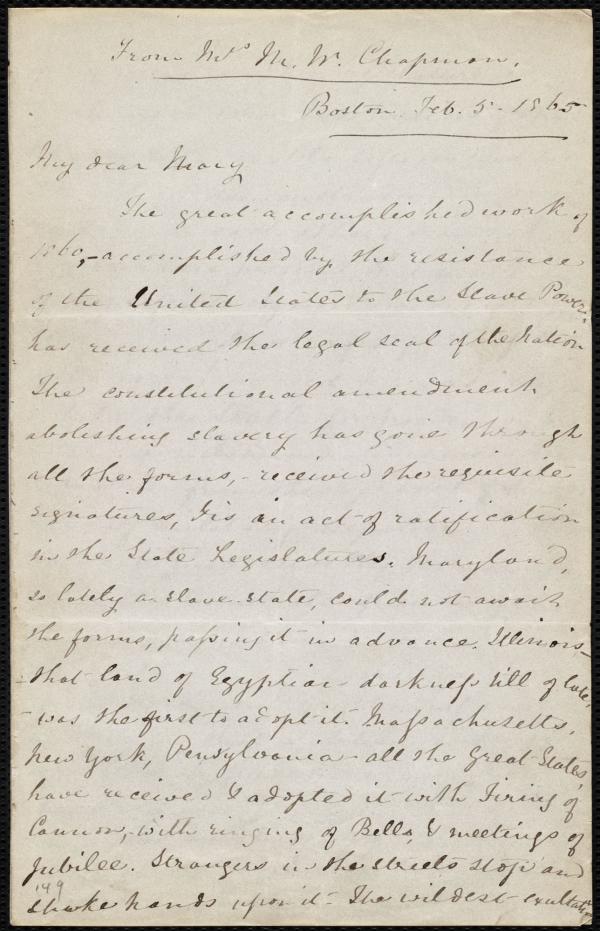 From Mrs M. W. Chapman.
Boston. Feb. 5 - 1865
My dear Mary
The great accomplished work of
1860,- accomplished by the resistance
of the United States to the Slave Power,
has received the legal seal of the Nation
The constitutional amendment
abolishing slavery has gone through
all the forms, - received the requisite
signatures, & is in act of ratification
in the State Legislatures. Maryland,
so lately a slave state, could not await
the forms, passing it in advance. Illinois -
- that land of Egyptian darkness till of late,
- was the first to adopt it. Massachusetts,
New York, Pensylvania - all the Great States,
have received & adopted it with Firing of
Cannon, - with ringing of Bells, & meetings of
Jubilee. Strangers in the streets stop and
149
shake hands upon it - The wildest exultation